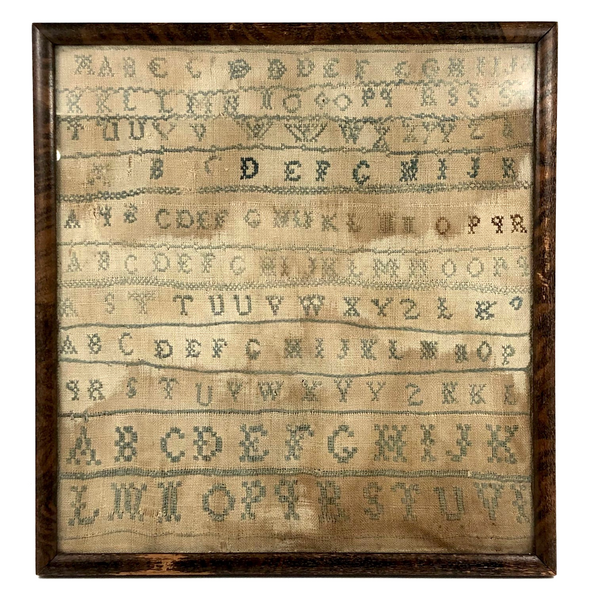 A A B C C D D D E F E G H I J
K K L L M N I O O O P q R S S
T U U V V W W X Y Y Z
B C D E F G H I J K
A B C D E F G H I J K L M I O P q R
A B C D E F G H I J K L M N O O P q
S T T U U V W X Y Z
A B C D E F G H I J K L M N O P
q R S T U V W X V Y Z R K
A B C D E F G H I J K
L M I O P q R S T U V